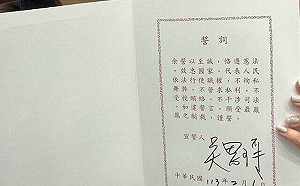 誓詞
余誓以至誠，恪遵憲法，
效忠國家，代表人民
依法行使職權，不徇私
舞弊，不營求私利，不
受授賄賂，不干涉司法。
如違誓言，願受最嚴
厲之制裁，謹誓。
宣誓人
吳思瑤
中華民國
113年2月1